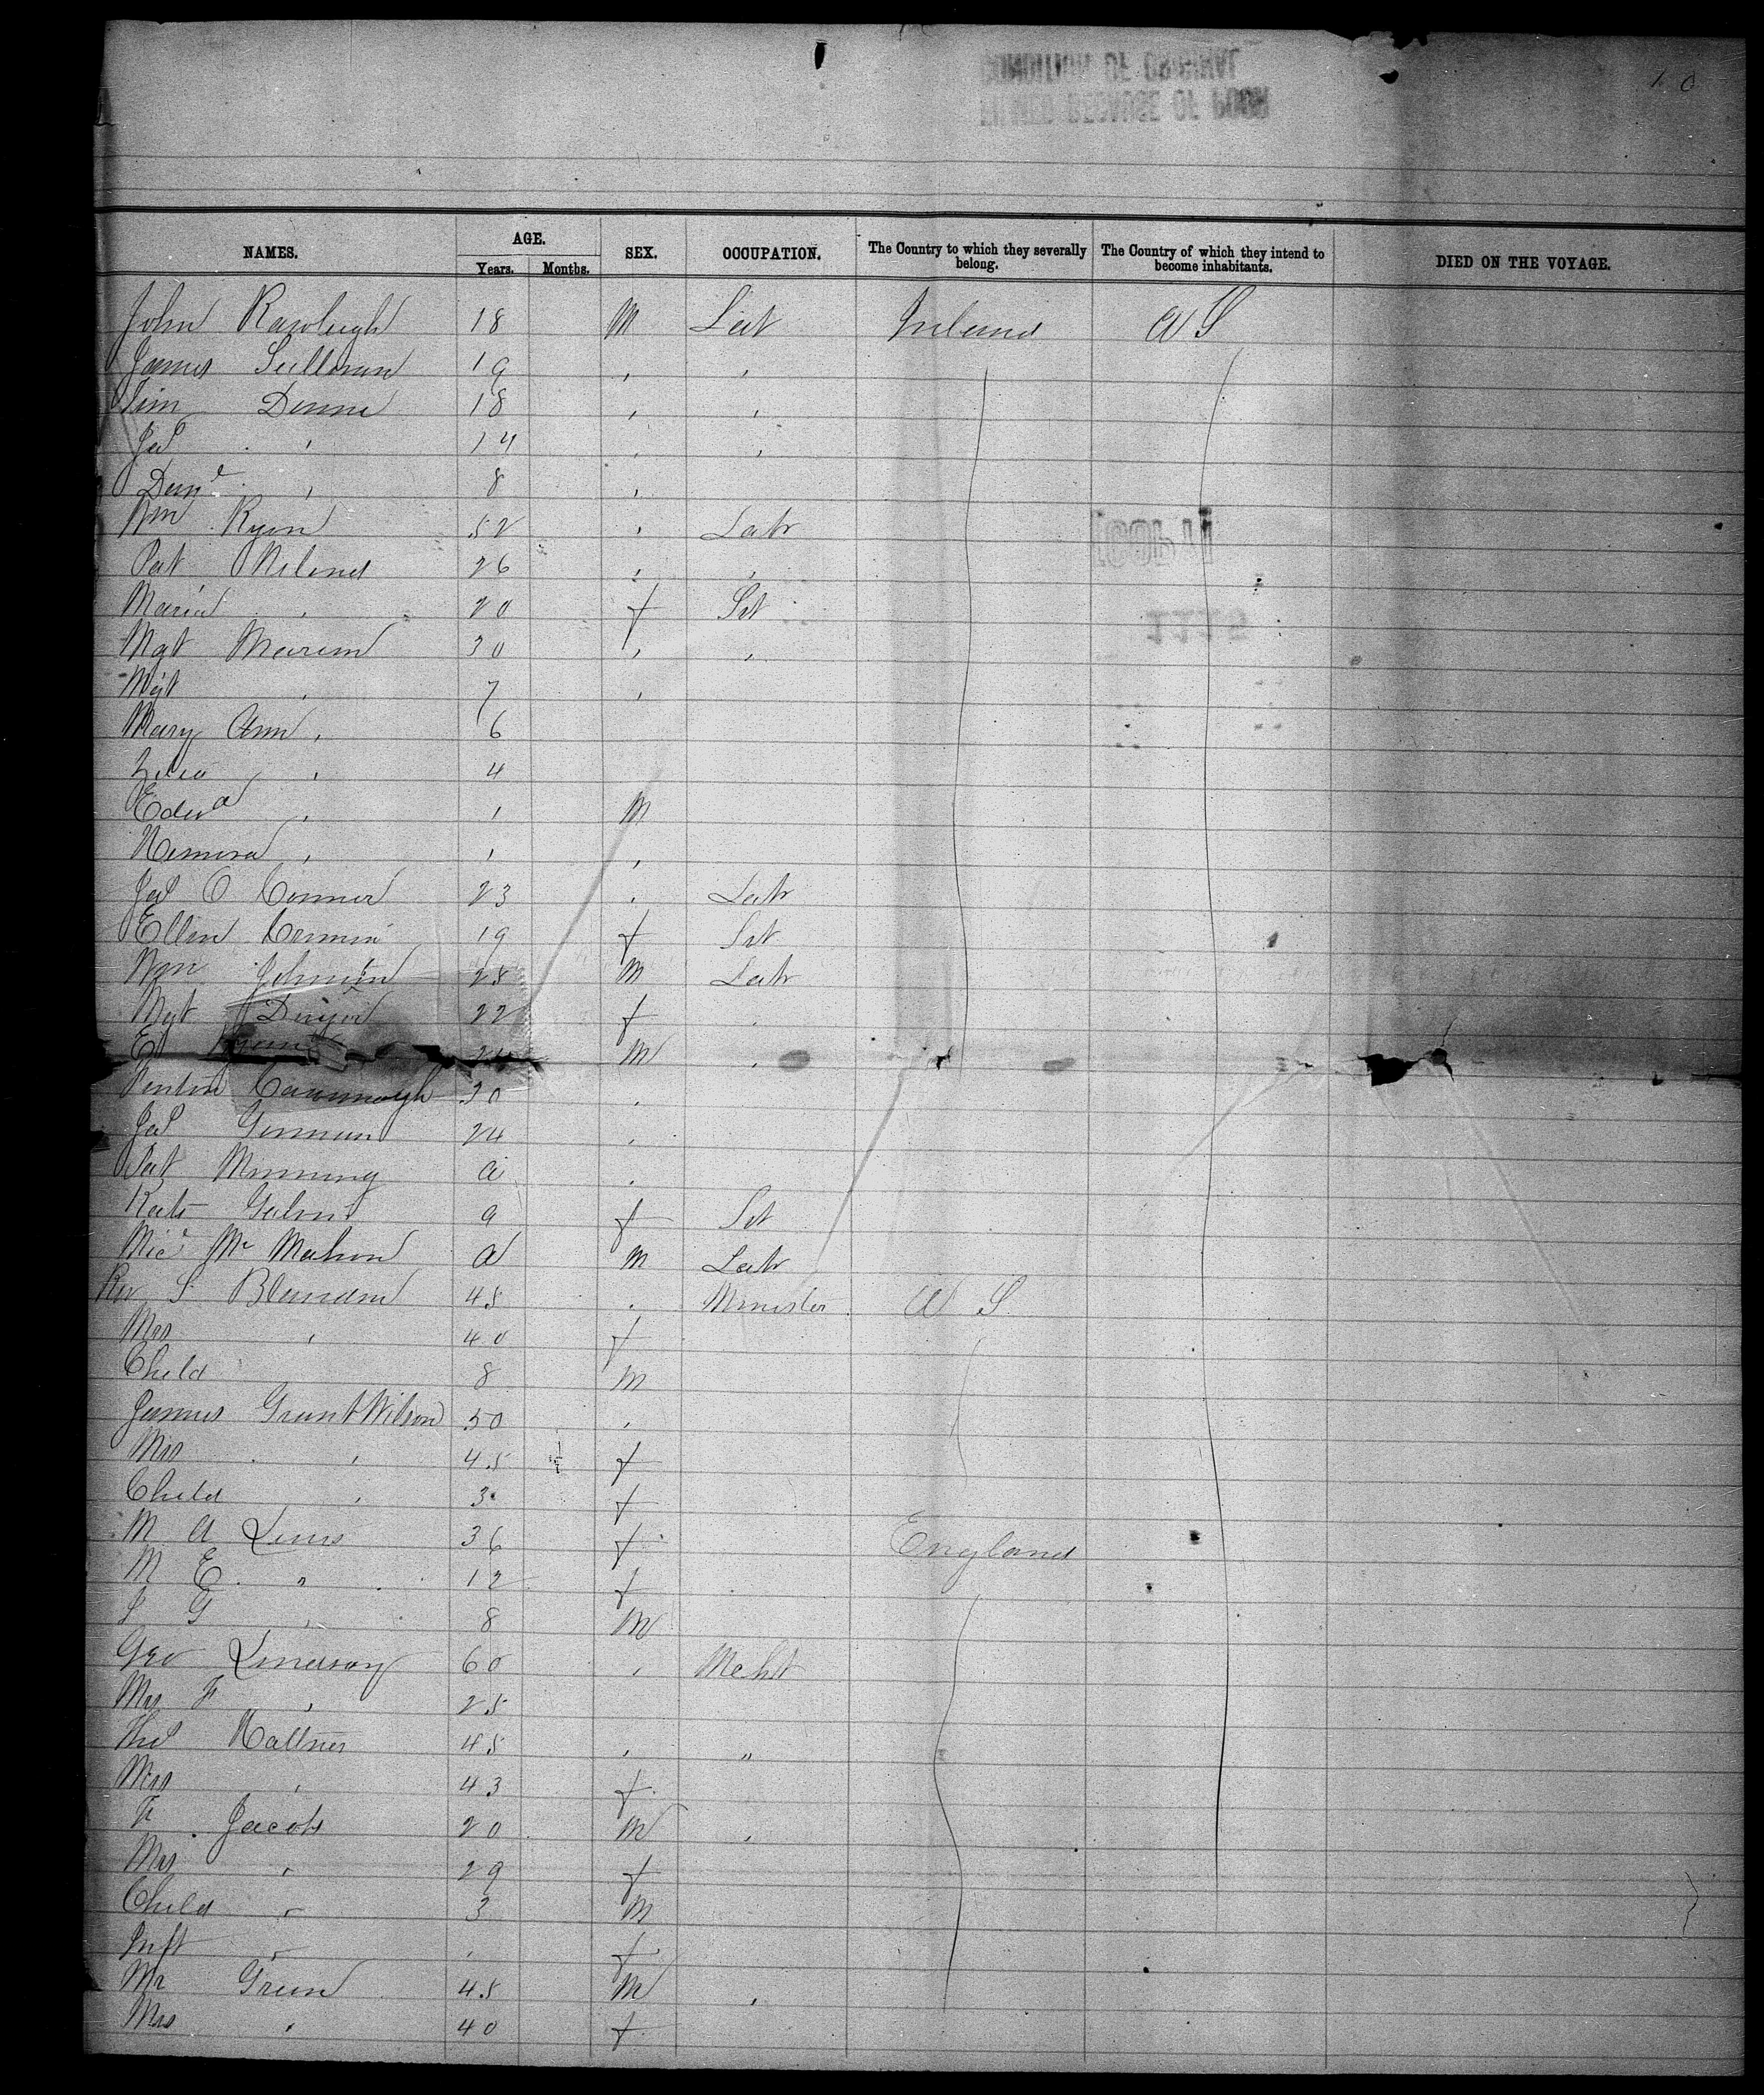 NAMES. AGE. SEX. OCCUPATION. The Country to which they severally belong. The Country of which they intend to become inhabitants. DIED ON THE VOYAGE.
Years. Months.
John Rawleigh 18 M Ireland U S
James Sullivan 19 , ,
Tim Dunne 18 , ,
Jas , 14 , ,
Danl , 8 ,
Wm Ryan 52 , Labr
Pat Niland 26 , ,
Maria , 20 f Svt
Mgt 30 , ,
Mgt , 7 ,
Mary Ann , 6
, 4
Edwd , 1 M
, 1 ,
Jas O Connor 23 , Labr
Ellen Cronin 19 f Svt
Wm Johnson 28 M Labr
Mgt Dwyer 22 f
Ed Ryan M ,
Cavannagh 30 ,
Jas Gorman 24 ,
Pat a ,
Kate a f Svt
Micl Mc Mahon a M Labr
Rev S 45 , Minister U S
Mrs , 40 f
Child 8 M
James Grant Wilson 50 ,
Mrs , 45 f
Child , 3 f
M A Lewis 36 f England
M E " 12 f
S G , 8 M
Geo Lindsay 60 , Mcht
Mrs F , 25
Thos 45 , "
Mrs , 43 f
F Jacobs 20 M ,
Mrs , 29 f
Child , 3 M
Inft , f
Mr Green 45 M ,
Mrs , 40 f